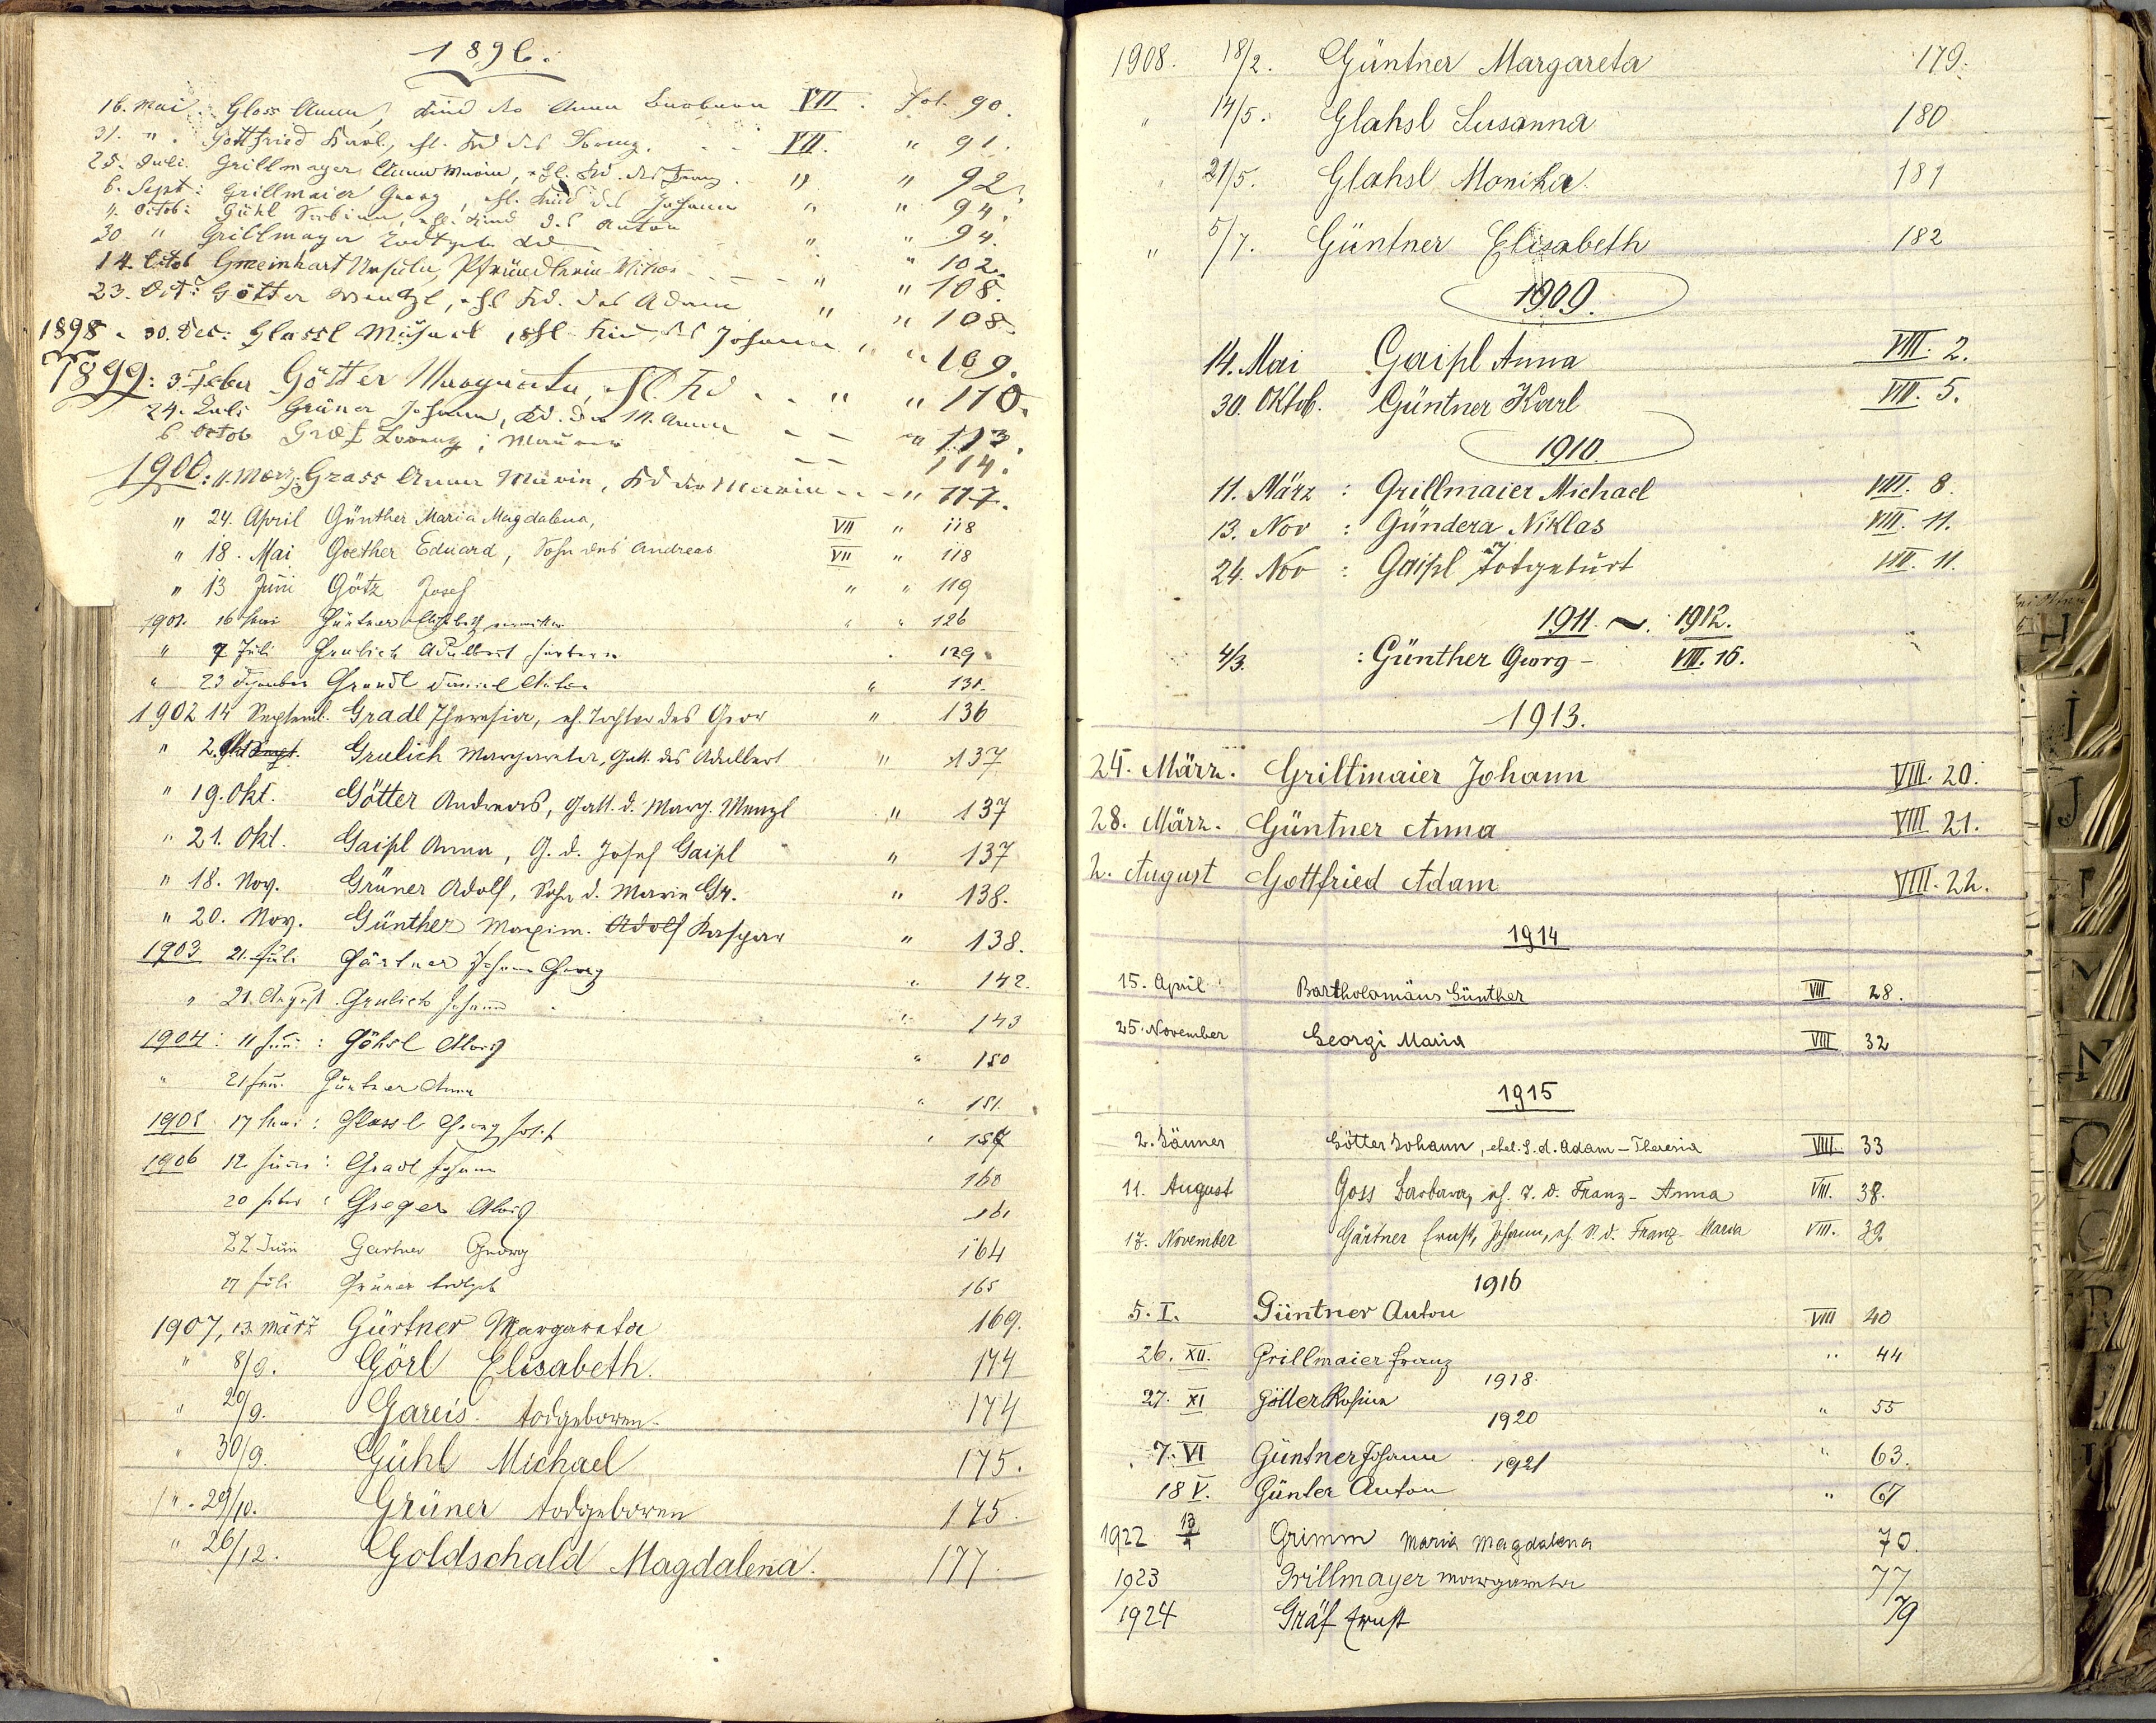 1896.
16. Mai. Gloss Anna, Kind der Anna Barbara VII. Fol. 90.
31. " Gottfried Karl, ehl. Kd des Lorenz. VII. " 91.
25. Juli. Grillmayer Anna Maria, ehl. Kd. des Franz. " " 92.
6. Sept: Grillmaier Georg, ehl. Kind des Johann " " 94.
Octob: Gühl Sabina, ehl. Kind des Anton " " 94.
30 " Grillmayer Todtgeb. Kd " " 102.
14. Octob Gmeinhart Ursula, Pfründlerin Witwe " " 108.
23. Oct: Götter Wenzl, ehl Kd. des Adam " " 108.
1898. 30. Dec: Glassl Michael, ehl Kind des Johann " " 109.
1899: 3. Feber Götter Margareta, ehl. Kd " " 110.
24. Juli Grüner Johann, Kd. der M. Anna " 113.
6 Octob Gräf Lorenz, Maurer 114.
1900: 11. März: Grass Anna Maria, Kd der Maria " 117.
" 24. April Günther Maria Magdalena, VII " 118
" 18. Mai Goether Eduard, Sohn des Andreas VII " 118
" 13 Juni Götz Josef " " 119
1901. 16 Mai Güntner Elisabeth " " 126
" 7 Juli Grulich Adalbert 129
" 23 Dezember Grandl " 131.
1902 14 Septemb. Gradl Theresia, eh. Tochter des Geor " 136
" 2. Okt Sept. Grulich Margareta, Gatt. des Adalbert " 137
" 19. Okt. Götter Andreas, Gatt. d. Marg. Menzl " 137
" 21. Okt. Gaipl Anna, G. d. Josef Gaipl " 137
" 18. Nov. Grüner Adolf, Sohn d. Marie Gr. " 138.
" 20. Nov. Günther Maxim. Adolf Kaspar " 138.
1903 21. Juli Gärtner Johann Georg " 142.
" 21. August. Grulich Johann " 143
1904: 11 Juni: Göhsl Alois " 150
" 21 Juni. Güntner Anna " 151.
1905 17 Mai: Glassl Georg Josef " 157
1906 12. Jänner: Gradl Johann 160
20 Feber: Greger Alois 161
22 Juni Gartner Georg 164
27 Juli Grüner todtgeb 165
1907, 13. März Gürtner Margareta 169.
" 8/9. Görl Elisabeth. 174
" 29/9. Gareis todgeboren. 174
" 30/9. Gühl Michael 175.
" 29/10. Grüner todgeboren 175.
" 26/12. Goldschald Magdalena. 177.
1908. 18/2. Güntner Margareta 179.
" 14/5. Glahsl Susanna 180
" 21/5. Glahsl Monika. 181
" 5/7. Güntner Elisabeth 182
1909.
14. Mai Gaipl Anna VIII. 2.
30. Oktob. Güntner Karl VIII. 5.
1910.
11. März: Grillmaier Michael VIII. 8.
13. Nov: Gündera Niklas VIII. 11.
24. Nov: Gaipl Totgeburt VIII. 11.
1911. ~. 1912.
4/3. : Günther Georg - VIII. 15.
1913.
24. März. Grillmaier Johann VIII. 20.
28. März. Güntner Anna VIII 21.
2. August Gottfried Adam VIII. 22.
1914
15. April Bartholomäus Günther VIII 28.
25. November Georgi Maria VIII 32
1915
2. Jänner Götter Johann, ehel. S. d. Adam - Theresia VIII. 33
11. August Goss Barbara, eh. T. d. Franz - Anna VIII. 38.
17. November Gärtner Ernst, Johann, eh. S. d. Franz - Maria VIII. 39.
1916
5. I. Güntner Anton VIII 40
26. XII. Grillmaier Franz " 44
1918.
27. XI Götter Rosina " 55
1920
7. VI Güntner Johann " 63.
1921
18 V. Günter Anton " 67
1922 13 Grimm Maria Magdalena 70.
1923 Grillmayer Margareta 77
1924 Gräf Ernst 79
H
I
J
N